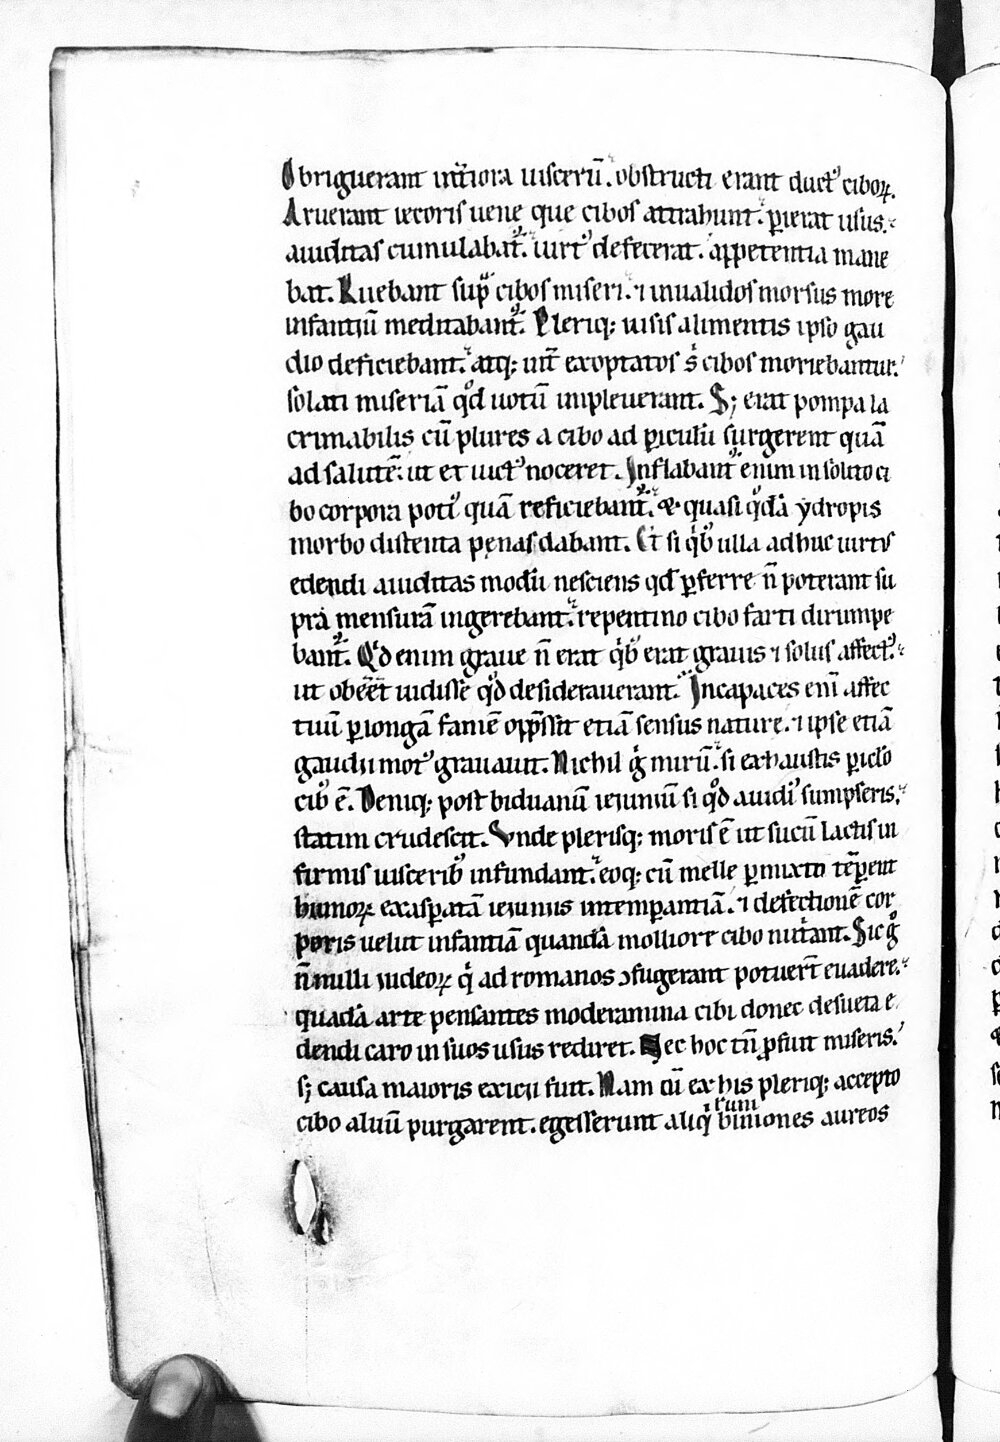 Obriguerant int̄iora uiscerū. obstructi erant duct᷒ ciboꝝ.
Aruerant iecoris uene que cibos attrahunt. ꝑierat usus.
auiditas cumulabat᷑. uirt᷒ defecerat. appetentia mane
bat. Ruebant sup̄ cibos miseri. ⁊ inualidos morsus more
infantiū meditabant᷑. Pleriq; uisis alimentis ipso gau
dio deficiebant. atq; int̄ exoptatos s cibos moriebantur.
solati miseriā qd̊ uotū impleuerant. S; erat pompa la
crimabilis cū plures a cibo ad ꝑiculū surgerent quā
ad salutē. ut et uict᷒ noceret. Inflabant᷑ enim insolito ci
bo corpora poti᷒ quā reficiebant᷑. & quasi qdā ydropis
morbo distenta penas dabant. Et si qb᷒ ulla adhuc uirt᷒
edendi auiditas modū nesciens qd ꝑferre n̄ poterant su
pra mensurā ingerebant. repentino cibo farti dirumpe
bant᷑. Qd enim graue n̄ erat qb᷒ erat grauis ⁊ solus affect᷒.
ut obeēt uidisse qd̊ desiderauerant. Incapaces enī affec
tuū ꝑ longā famē opp̄ssit etiā sensus nature. ⁊ ipse etiā
gaudii mot᷒ grauauit. Nichil g mirū. si exhaustis ꝑiclo
cib᷒ ē. Deniq; post biduanū ieiuniū si qd̊ auidi᷒ sumpseris.
statim crudescit. Vnde plerisq; moris ē ut sucū lactis in
firmis uiscerib᷒ infundant. eoq; cū melle ꝑmixto tēꝑent
humoꝝ exasꝑatā ieiuniis intemꝑantiā. ⁊ defectionē cor
poris uelut infantiā quandā molliore cibo nutant. Sic g̊
n̄ nulli iudeoꝝ q ad romanos ↄfugerant potuert̄ euadere.
quadā arte pensantes moderamina cibi donec desueta e
dendi caro in suos usus rediret. Nec hoc tn̄ ꝓfuit miseris.
s; causa maioris exicii fuit. Nam cū ex his pleriq; accepto
cibo aluū purgarent. egesserunt aliq biniones aureos